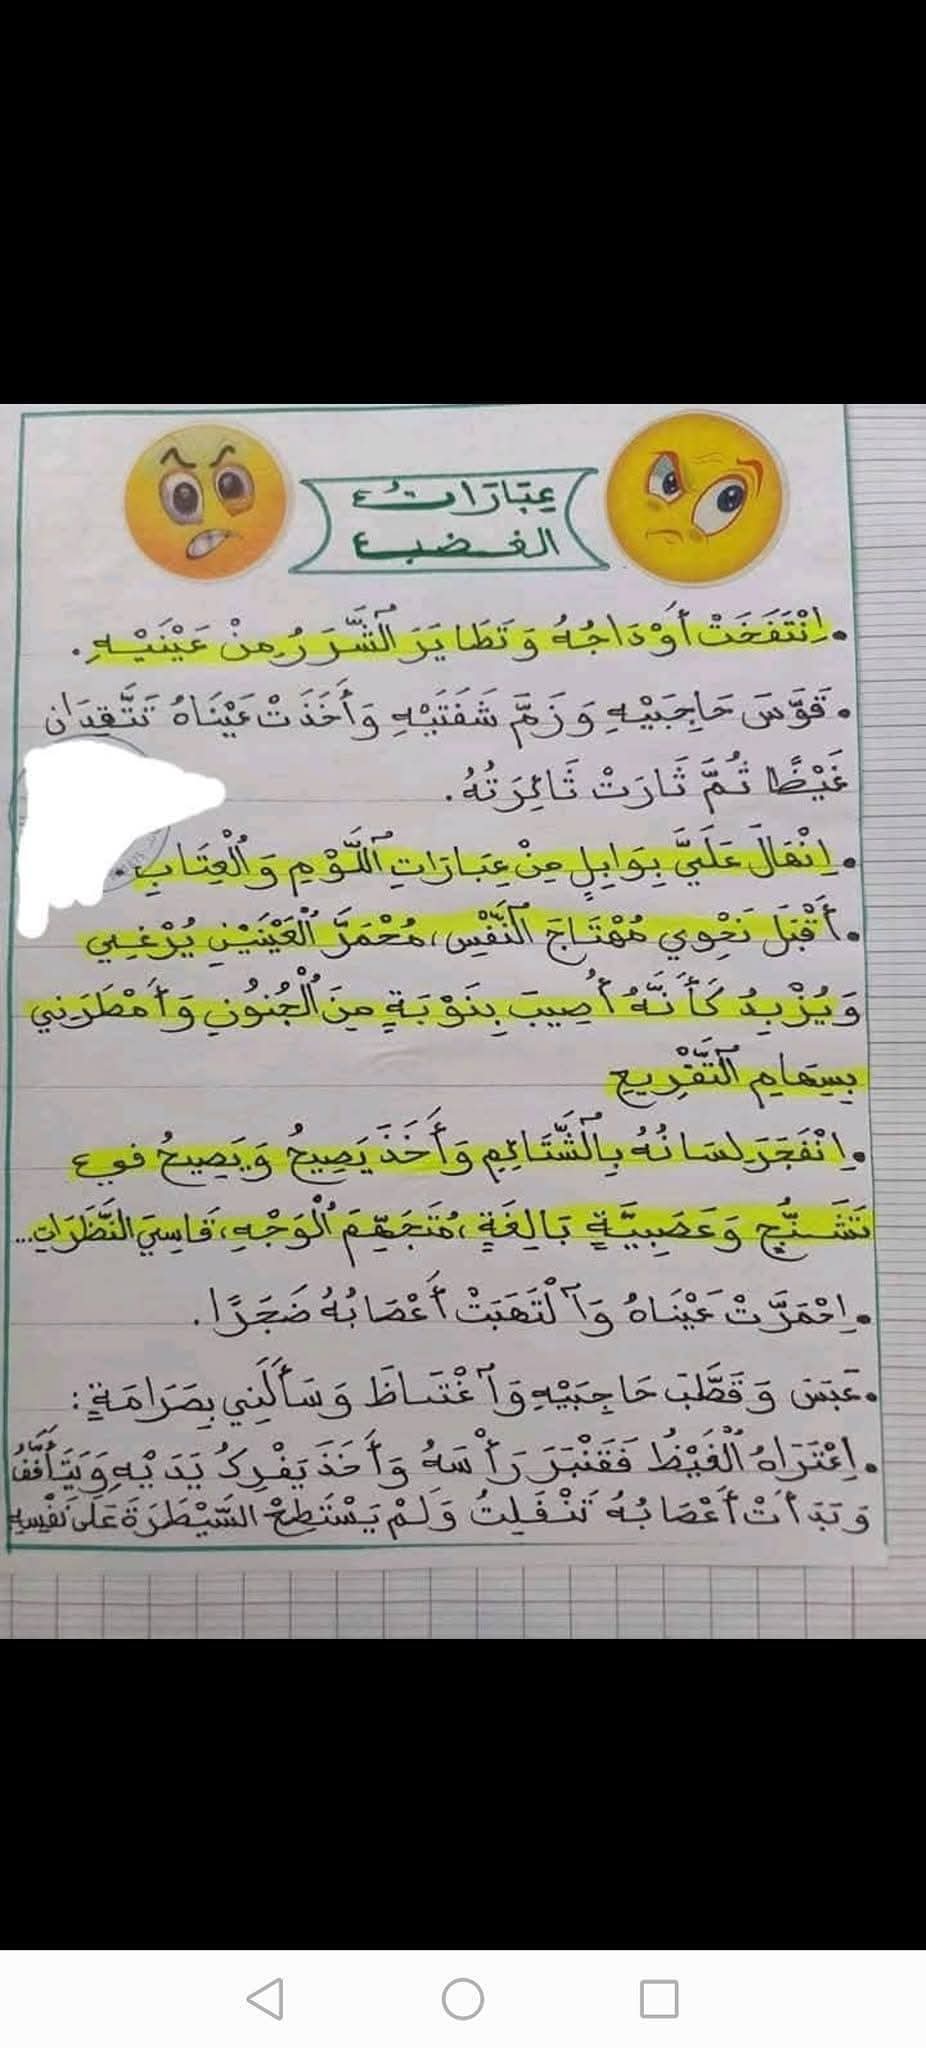 عِبَارَاتُ
الغضب
. اِنْتَفَخَتْ أَوْدَاجُهُ وَتَطَايَرَ ٱلشَّرَرُ مِنْ عَيْنَيْهِ.
. قَوَّسَ حَاجِبَيْهِ وَزَمَّ شَفَتَيْهِ وَأَخَذَتْ عَيْنَاهُ تَتَّقِدَانِ
غَيْظًا ثُمَّ ثَارَتْ ثَائِرَتُهُ.
. اِنْهَالَ عَلَيَّ بِوَابِلٍ مِنْ عِبَارَاتِ ٱللَّوْمِ وَٱلْعِتَابِ.
. أَقْبَلَ نَحْوِي مُهْتَاجَ ٱلنَّفْسِ، مُحْمَرَّ ٱلْعَيْنَيْنِ يُرْغِي
وَيُزْبِدُ كَأَنَّهُ أُصِيبَ بِنَوْبَةٍ مِنَ ٱلْجُنُونِ وَأَمْطَرَنِي
بِسِهَامِ ٱلتَّقْرِيعِ
. اِنْفَجَرَ لِسَانُهُ بِٱلشَّتَائِمِ وَأَخَذَ يَصِيحُ وَيَصِيحُ في
تَشَنُّجٍ وَعَصَبِيَّةٍ بَالِغَةٍ، مُتَجَهِّمَ ٱلْوَجْهِ، قَاسِيَ النَّظَرَاتِ...
. اِحْمَرَّتْ عَيْنَاهُ وَٱلْتَهَبَتْ أَعْصَابُهُ ضَجَرًا.
. عَبَسَ وَقَطَّبَ حَاجِبَيْهِ وَٱغْتَاظَ وَسَأَلَنِي بِصَرَامَةٍ:
. اِعْتَرَاهُ ٱلْغَيْظُ فَقَنْبَرَ رَأْسَهُ وَأَخَذَ يَفْرِكُ يَدَيْهِ وَيَتَأَفَّفُ
وَبَدَأَتْ أَعْصَابُهُ تَنْفَلِتُ وَلَمْ يَسْتَطِعْ السَّيْطَرَةَ عَلَى نَفْسِهِ